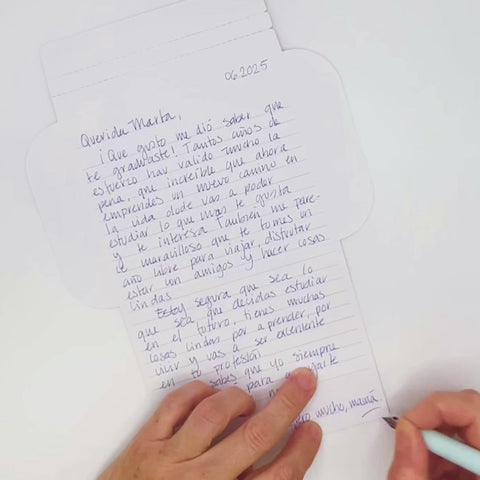 06.2025
Querida Marta,
¡Que gusto me dió saber que
te graduaste! Tantos años de
esfuerzo han valido mucho la
pena, que increíble que ahora
emprendes un nuevo camino en
la vida dode vas a poder
estudiar lo que mas te gusta
y te interesa. También me pare-
ce maravilloso que te tomes un
año libre para viajar, disfrutar
estar un amigos y hacer cosas
lindas
Estoy segura que sea lo
que sea que decidas estudiar
en el futuro, tienes muchas
cosas lindas por aprender, por
vivir y vas a ser excelente
en tu profesión
sabes que yo siempre
para
mucho, mamá